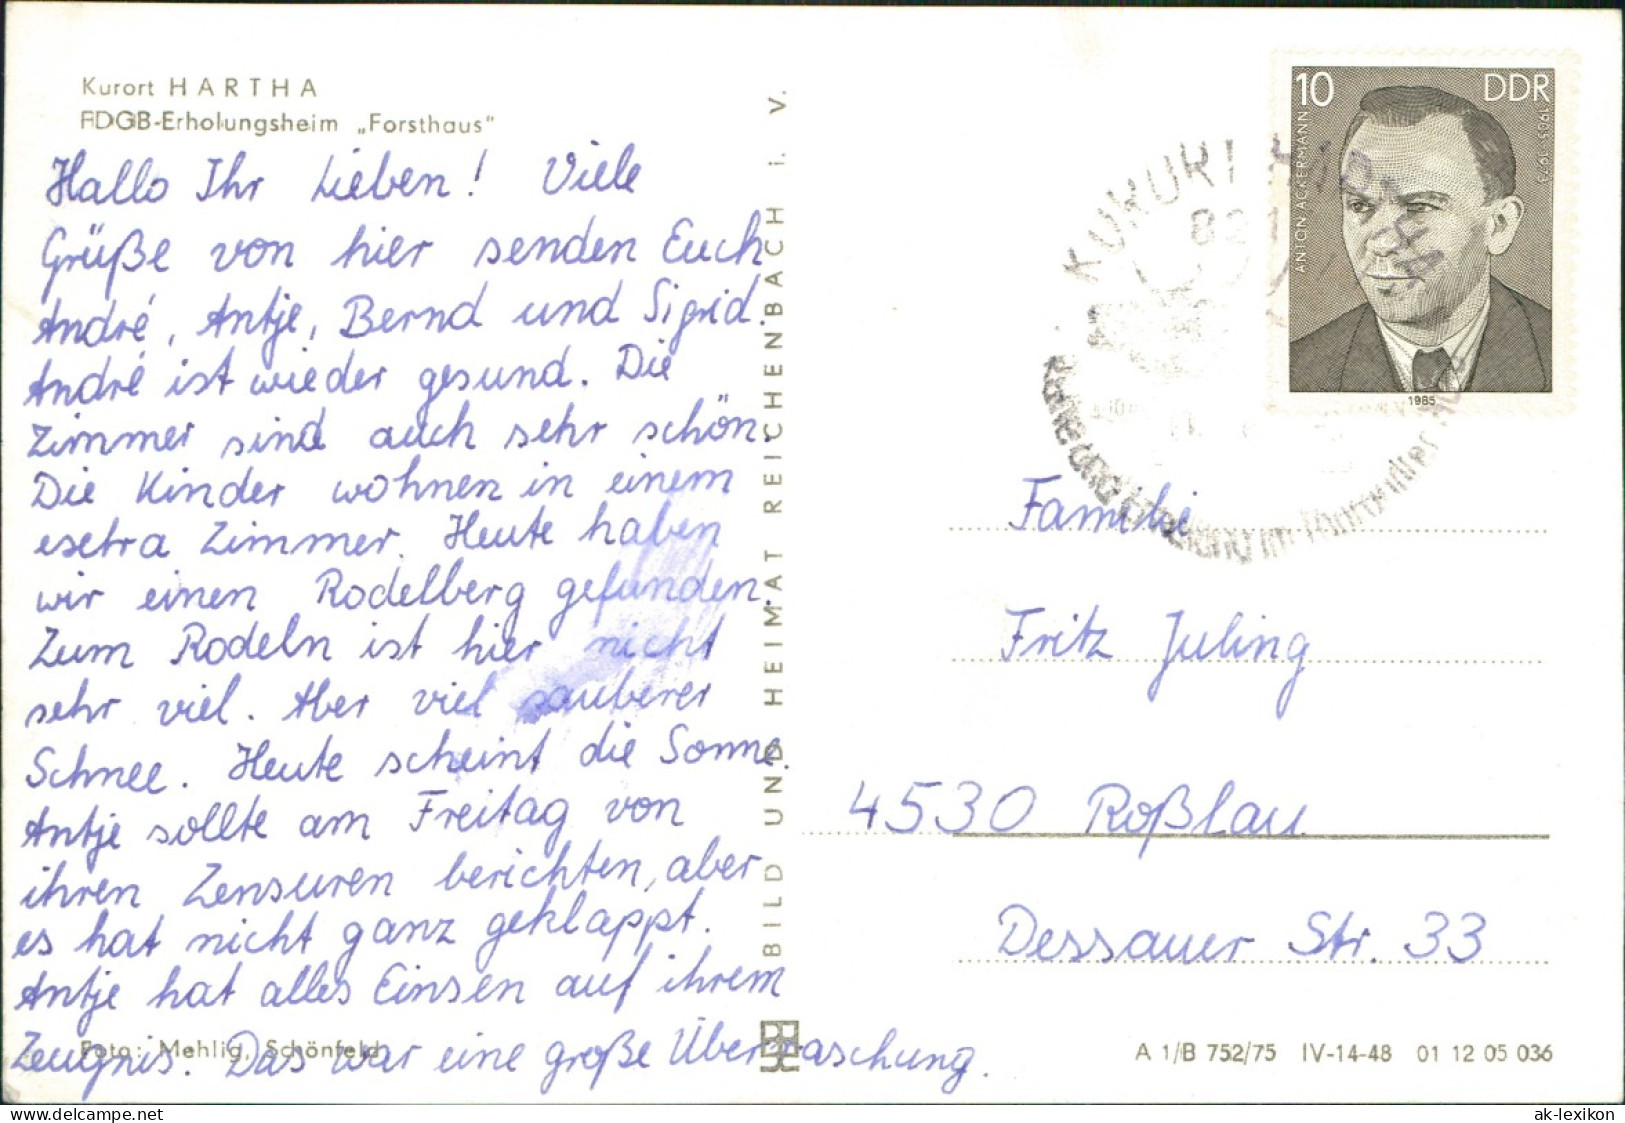 Kurort HARTHA
FDGB-Erholungsheim „Forsthaus“
Hallo Ihr Lieben! Viele
Grüße von hier senden Euch
André, Antje, Bernd und Sigrid.
André ist wieder gesund. Die
Zimmer sind auch sehr schön.
Die Kinder wohnen in einem
esetra Zimmer. Heute haben
wir einen Rodelberg gefunden.
Zum Rodeln ist hier nicht
sehr viel. Aber viel sauberer
Schnee. Heute scheint die Sonne.
Antje sollte am Freitag von
ihren Zensuren berichten, aber
es hat nicht ganz geklappt.
Antje hat alles Einsen auf ihrem
Zeugnis. Das war eine große Überraschung.
Foto: Mehlig, Schönfeld
BILD UND HEIMAT REICHENBACH i. V.
10 DDR
ANTON ACKERMANN
1905-1973
1985
KURORT HARTHA
821
Familie
Fritz Juling
4530 Roßlau
Dessauer Str. 33
A 1/B 752/75 IV-14-48 01 12 05 036
ak-lexikon